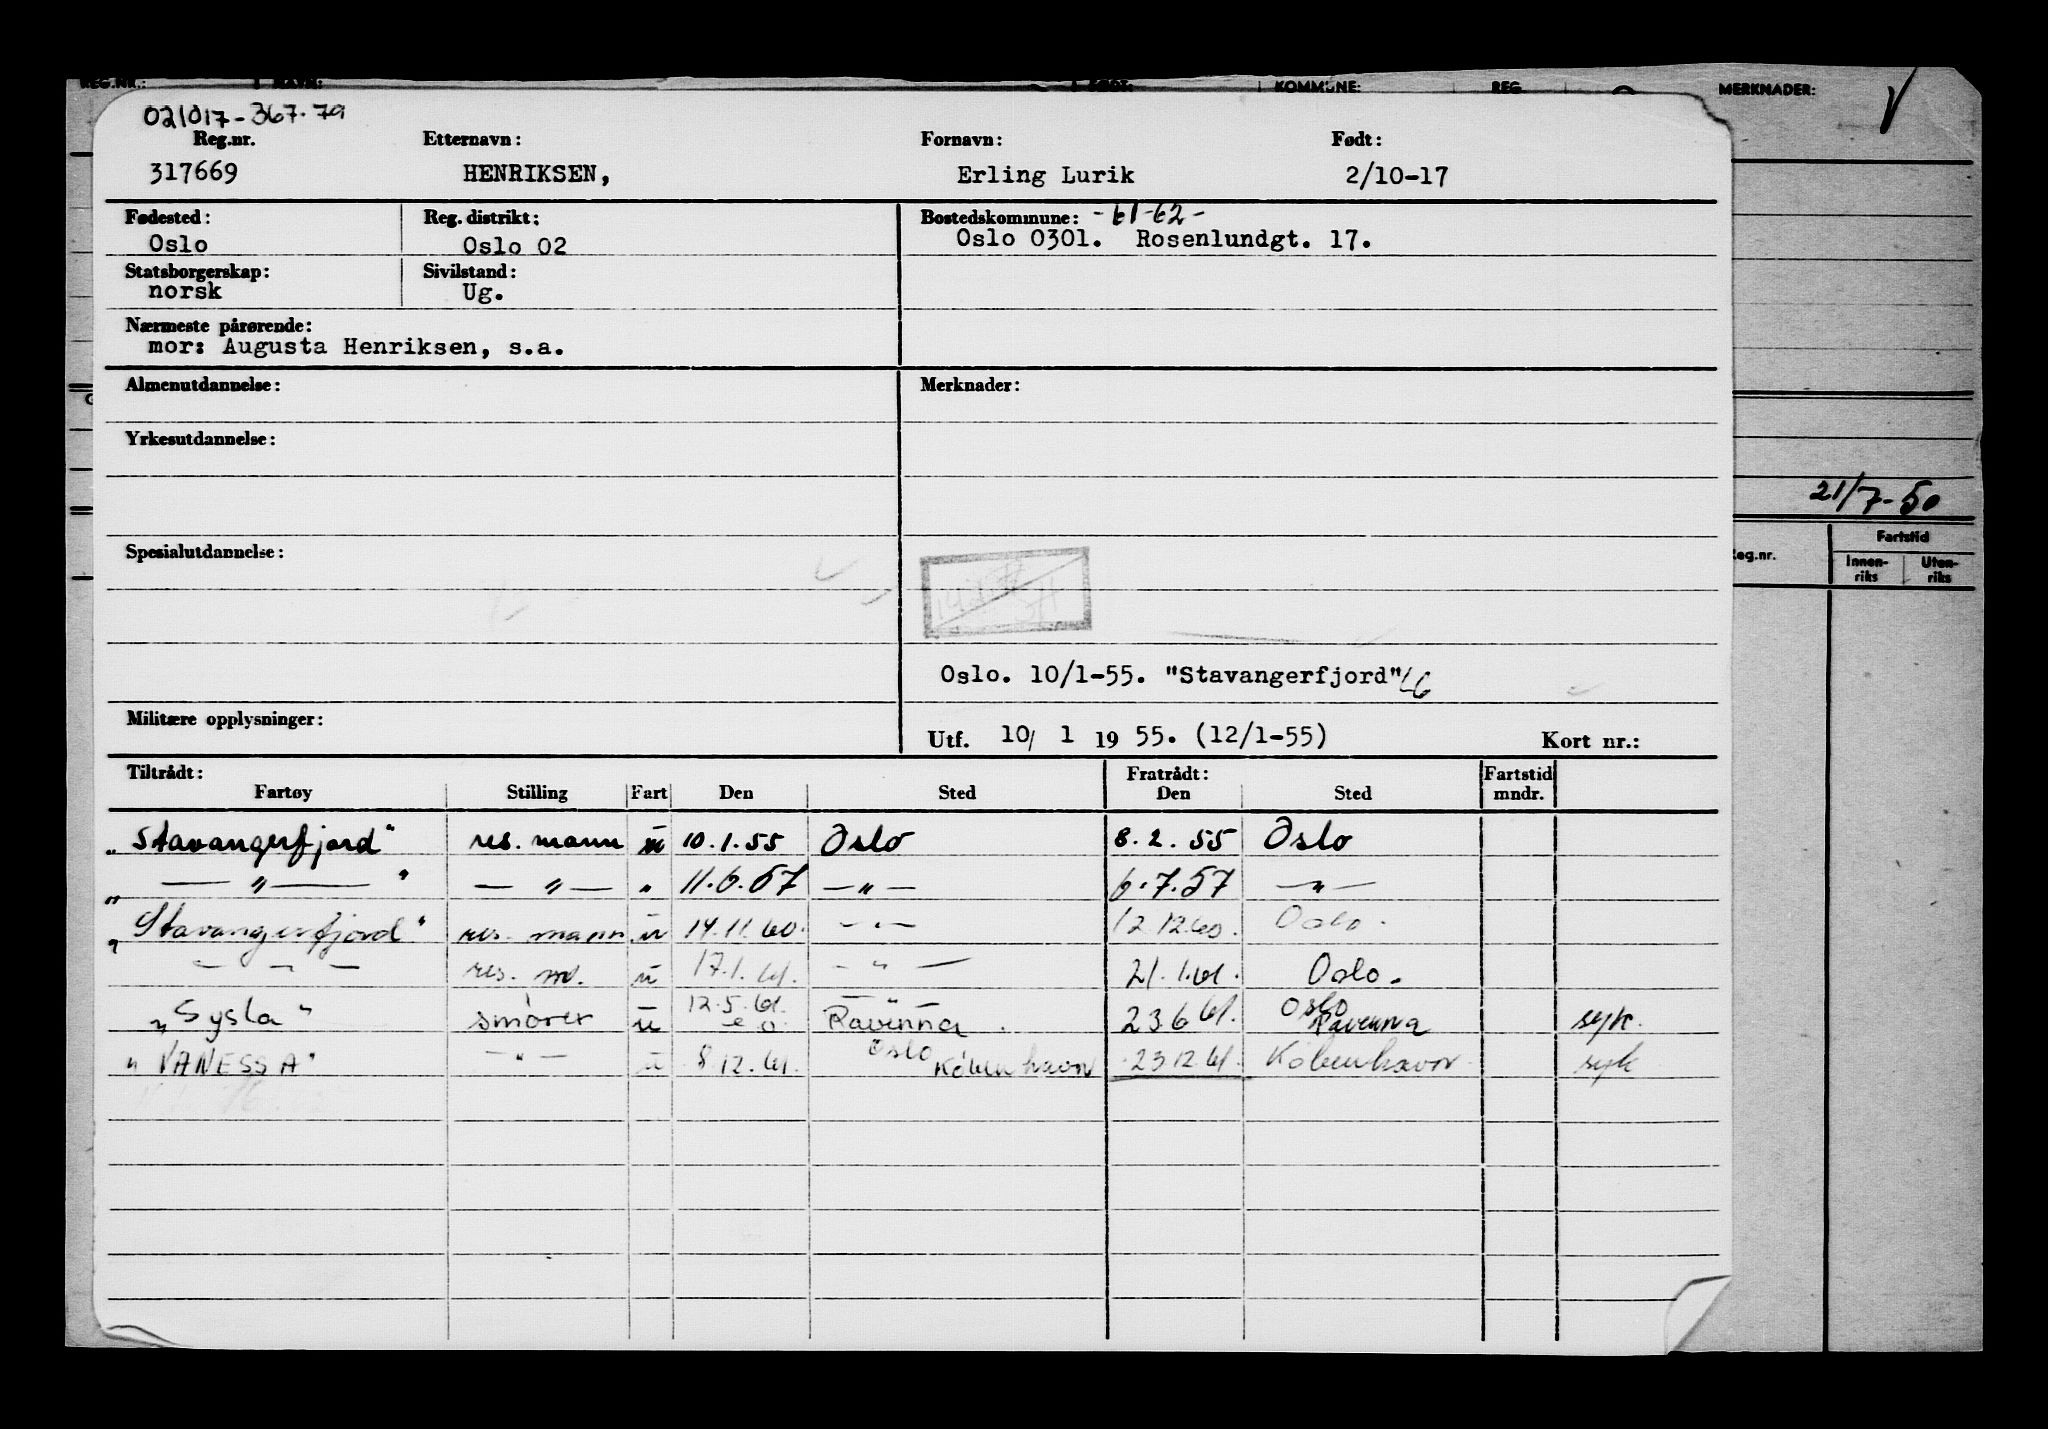 REG.NR.: NAVN: FØDT: KOMMUNE: REG. MERKNADER:
021017-367.79
Reg.nr. Etternavn: Fornavn: Født:
317669 HENRIKSEN, Erling Lurik 2/10-17
Fødested: Reg. distrikt: Bostedskommune: -61-62-
Oslo Oslo 02 Oslo 0301. Rosenlundgt. 17.
Statsborgerskap: Sivilstand:
norsk Ug.
Nærmeste pårørende:
mor: Augusta Henriksen, s.a.
Almenutdannelse: Merknader:
Yrkesutdannelse:
21/7-50
Spesialutdannelse:
Reg.nr. Fartstid
Innen-riks Uten-riks
Oslo. 10/1-55. "Stavangerfjord"
Militære opplysninger:
Utf. 10/ 1 19 55. (12/1-55) Kort nr.:
Tiltrådt: Fratrådt: Fartstid
Fartøy Stilling Fart Den Sted Den Sted mndr.
"Stavangerfjord" res. mann u 10.1.55 Oslo 8.2.55 Oslo
" — " — " — " — " 11.6.57 — " — 6.7.57 — " —
"Stavangerfjord" res. mann u 14.11.60. — " — 12.12.60. Oslo.
" — — — res. m. u 17.1.61. — " — 21.1.61. Oslo.
"Sysla" smører u 12.5.61. — " — Ravenna 23.6.61. Oslo Ravenna syk.
"VANESSA" — " — u 8.12.61. Oslo København 23.12.61. København syk